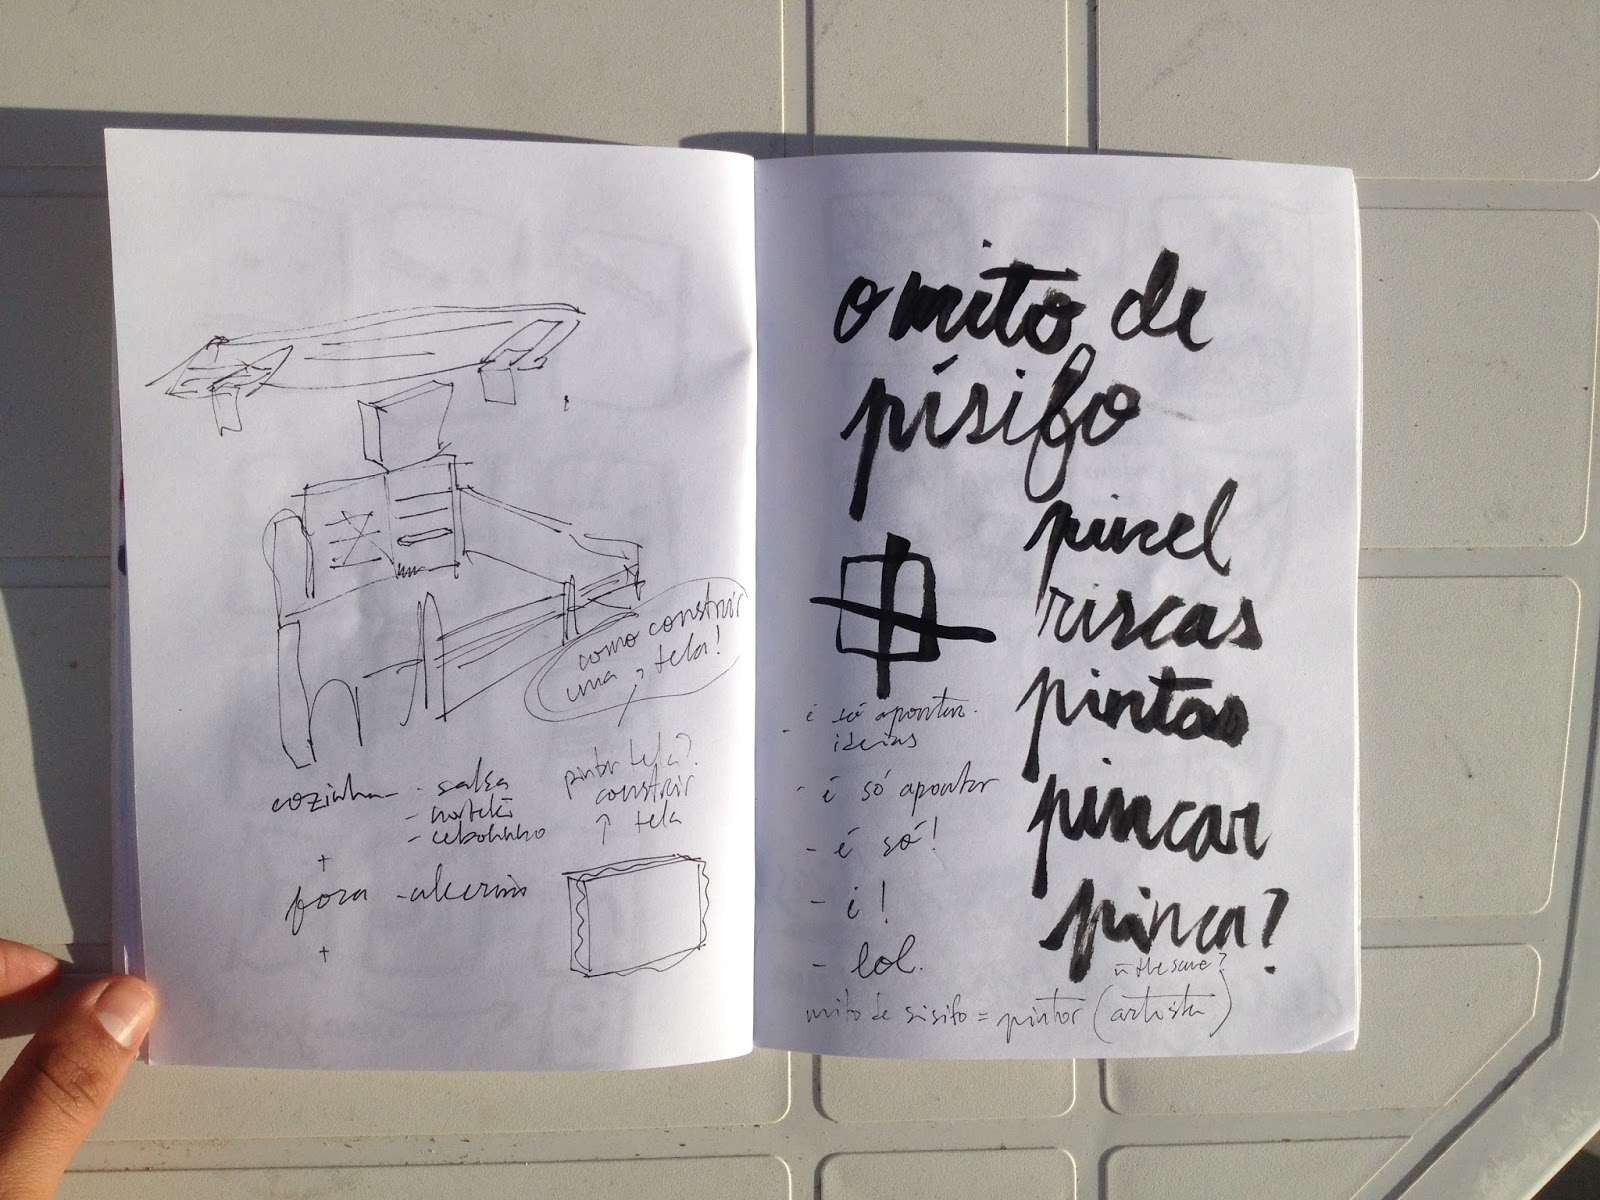 como construir
uma tela!
cozinha - salsa
- hortelã
- cebolinho
+
fora - alecrim
+
pintar tela?
construir
↑ tela
o mito de
písifo
pincel
riscas
pintas
pincar
pinca?
- é só apontar
ideias
- é só apontar
- é só!
- é!
- lol.
the same?
mito de sisifo = pintor (artista)